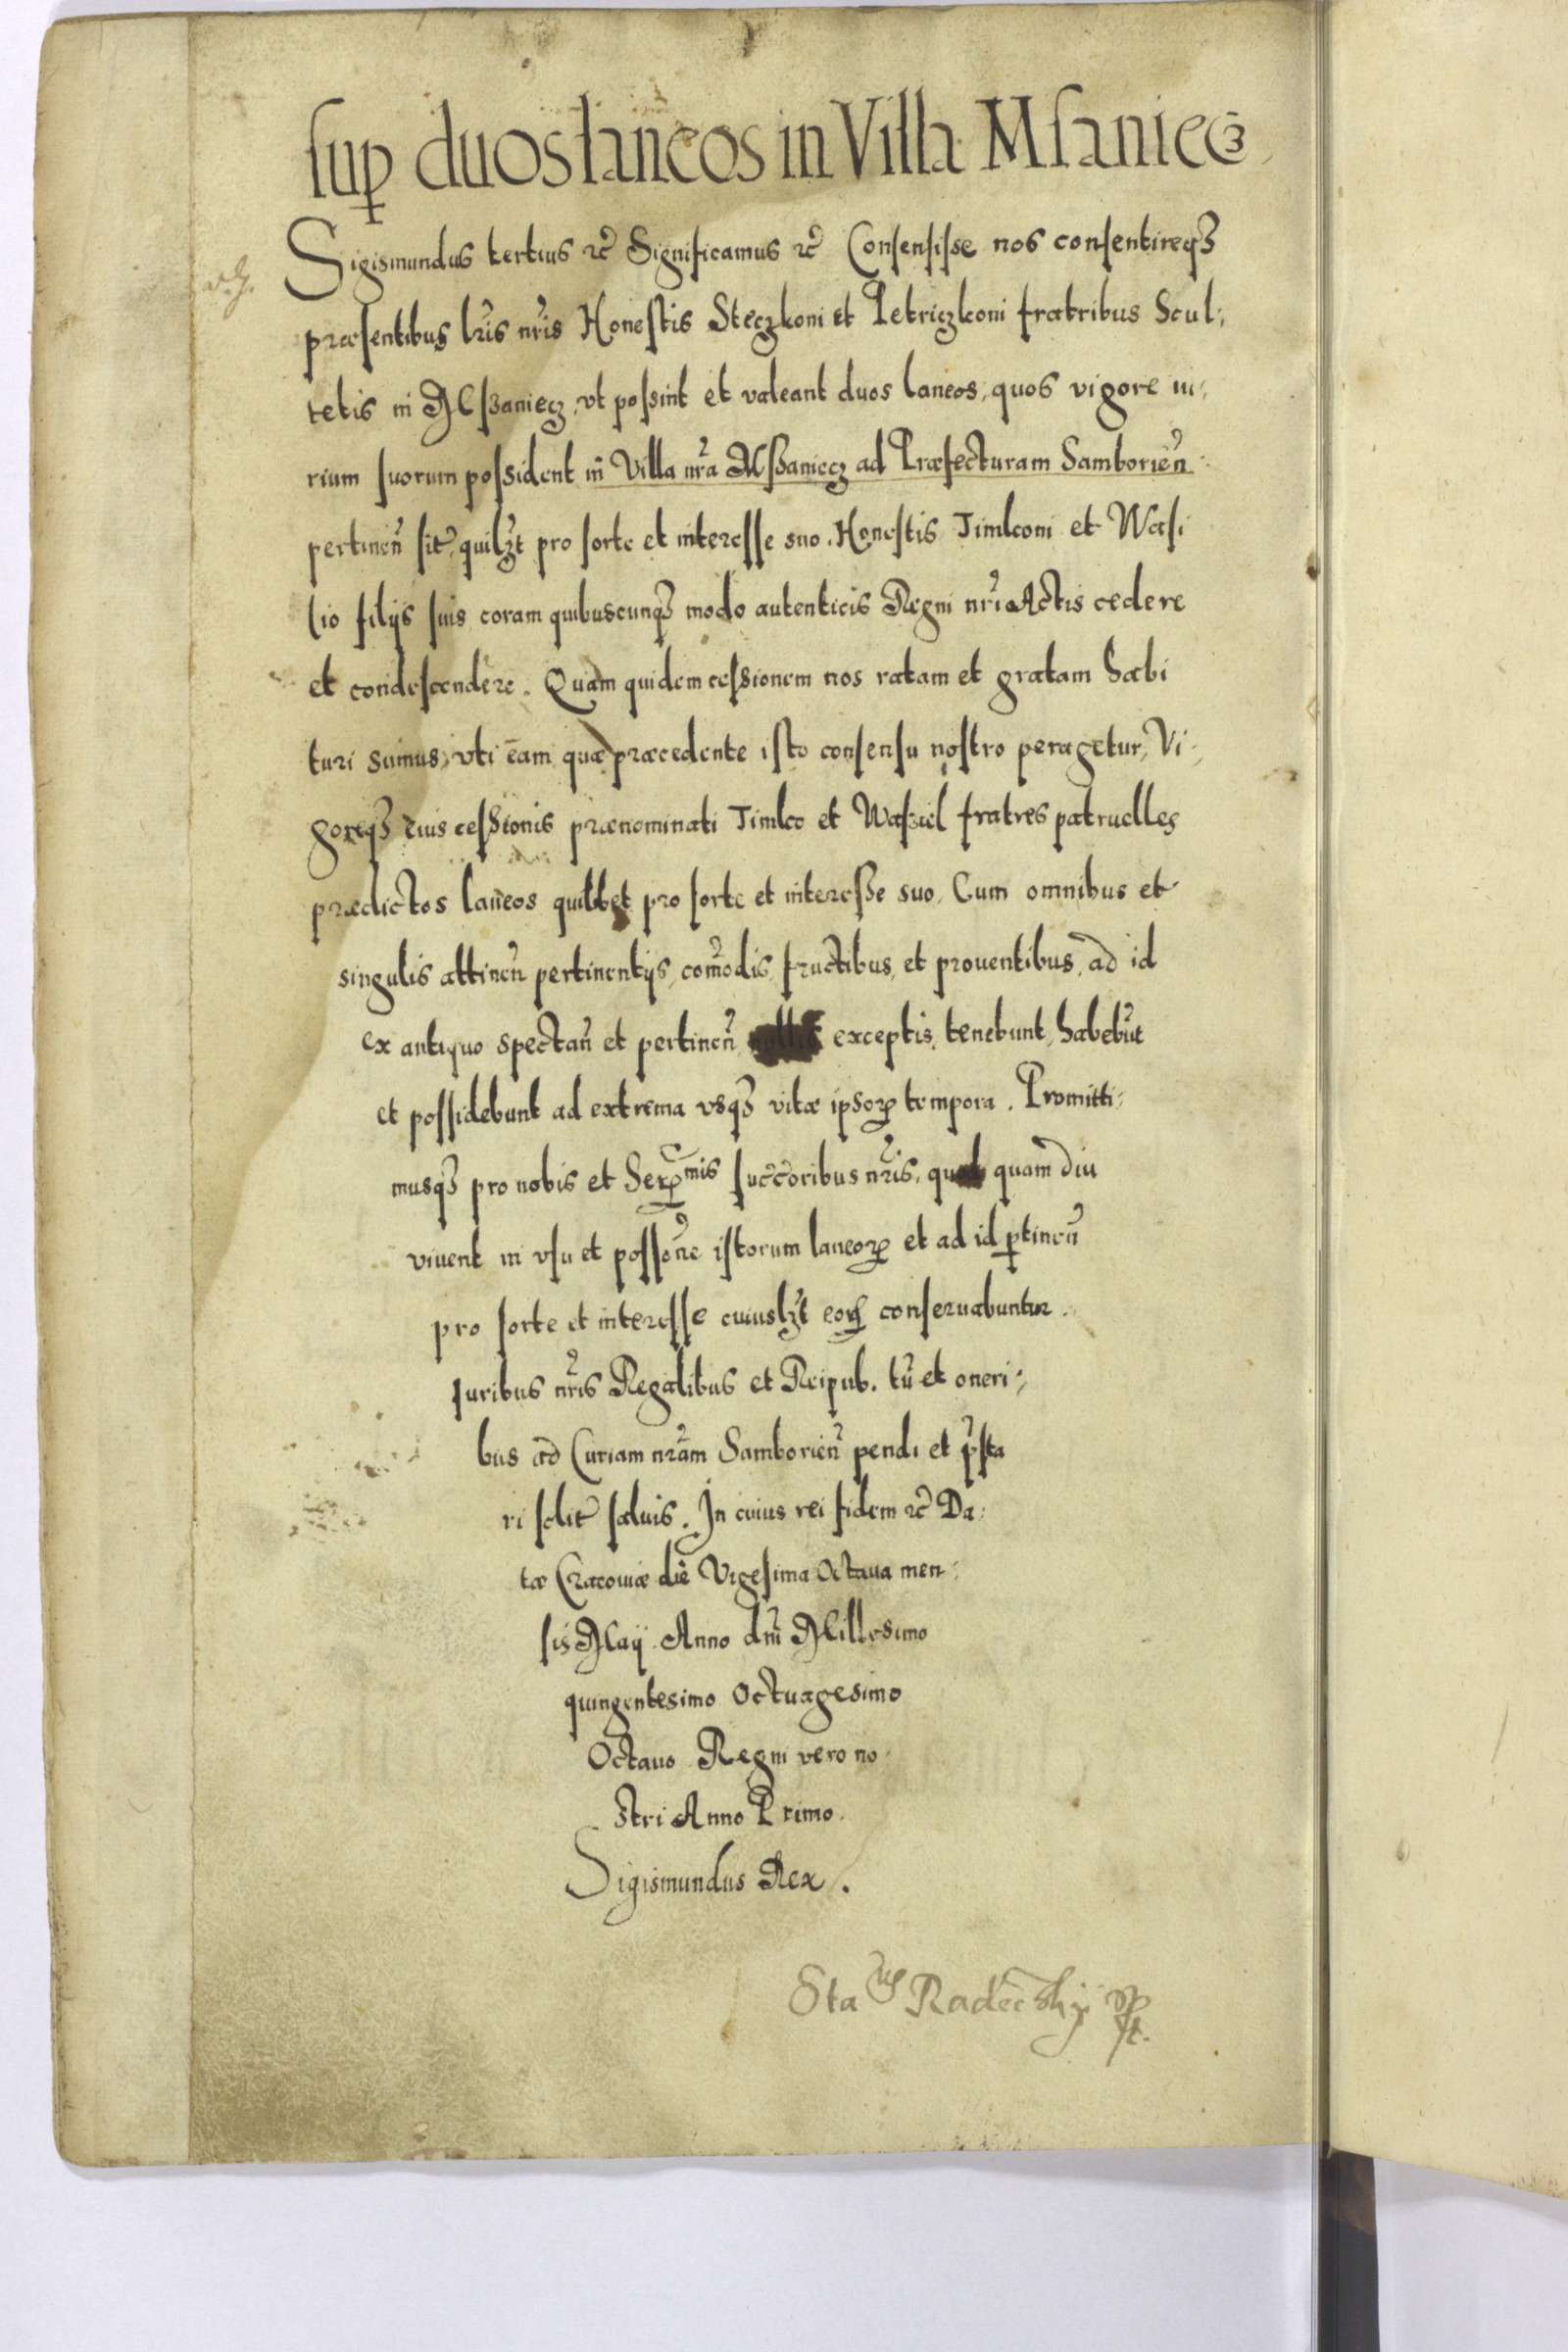 sup duos laneos in Villa Msaniecz
Sigismundus tertius etc̃ Significamus etc̃ Consensisse nos consentireqз
præsentibus lr̃is nr̃is Honestis Steczkoni et Petriczkoni fratribus Scul,
tetis in Mszaniecz, vt possint et valeant duos laneos, quos vigore iu,
rium suorum possident in Villa nr̃a Mszaniecz ad Præfecturam Samborien̄
pertinen̄ sit̃, quilзt pro sorte et interesse suo. Honestis Timkoni et Wasi
lio filijs suis coram quibuscunqз modo autenticis Regni nr̃i Actis cedere
et condescendere. Quam quidem cessionem nos ratam et gratam habi
turi sumus, vti eam quæ præcedente isto consensu nostro peragetur, Vi,
goreqз eius cessionis prænominati Timko et Wasziel fratres patruelles
prædictos laneos quilibet pro sorte et interesse suo, Cum omnibus et
singulis attinen̄ pertinentijs, com̃odis, fructibus, et prouentibus, ad id
ex antiquo spectan̄ et pertinen̄, nullis exceptis, tenebunt, habebūt
et possidebunt ad extrema vsqз vitæ ipsoꝝ tempora. Promitti,
musqз pro nobis et Serꝫmis succ̃oribus nr̃is, quod quam diu
viuent in vsu et possõne istorum laneoꝝ et ad id ꝑtinen̄
pro sorte et interesse cuiuslзt eoꝝ conseruabuntur.
Iuribus nr̃is Regalibus et Reipub. tū et oneri,
bus ad Curiam nr̃am Samborien̄ pendi et p̃sta
ri solit̃ saluis. In cuius rei fidem etc̃ Da,
tæ Cracouiæ die Vigesima Octaua men,
sis Maij Anno dn̄i Millesimo
quingentesimo Octuagesimo
Octauo Regni vero no
stri Anno Primo.
Sigismundus Rex.
Sta us Radecskij